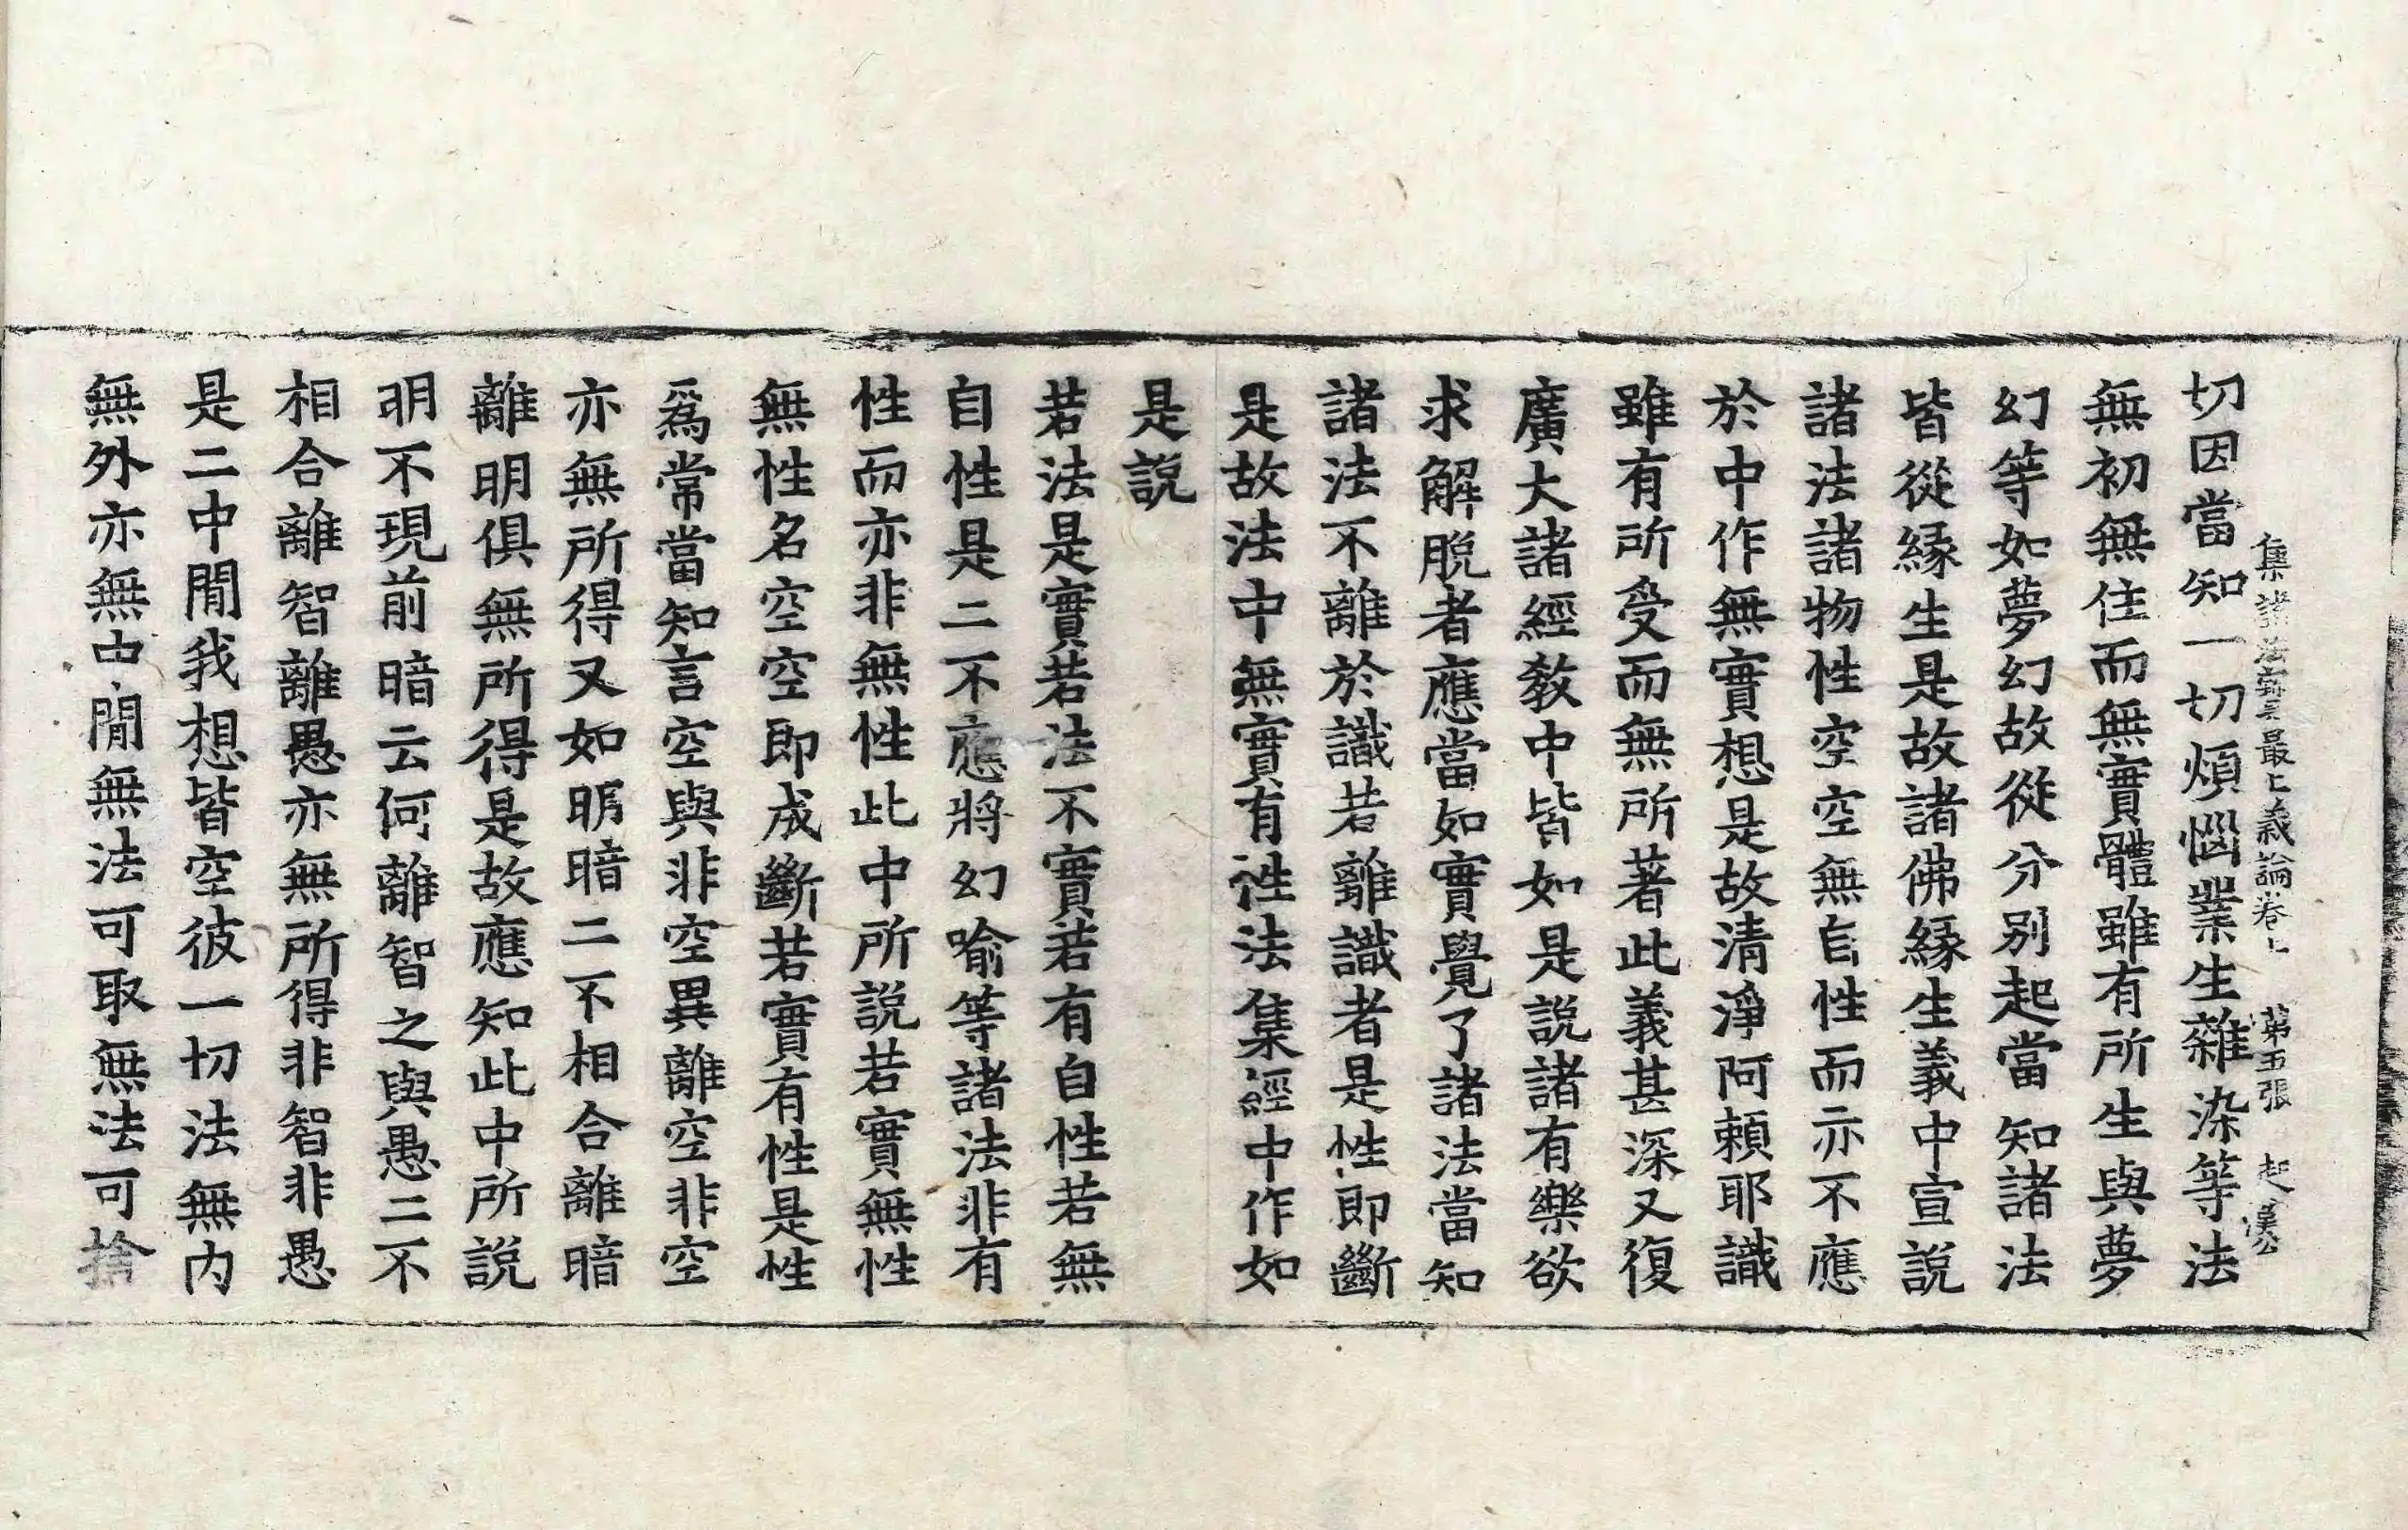 集諸法寶最上義論卷上 第五張 起
切因當知一切煩惱業生雜染等法
無初無住而無實體雖有所生與夢
幻等如夢幻故從分別起當知諸法
皆從緣生是故諸佛緣生義中宣說
諸法諸物性空空無自性而亦不應
於中作無實想是故清淨阿賴耶識
雖有所受而無所著此義甚深又復
廣大諸經教中皆如是說諸有樂欲
求解脫者應當如實覺了諸法當知
諸法不離於識若離識者是性即斷
是故法中無實有性法集經中作如
是說
若法是實若法不實若有自性若無
自性是二不應將幻喻等諸法非有
性而亦非無性此中所說若實無性
無性名空空即成斷若實有性是性
爲常當知言空與非空異離空非空
亦無所得又如明暗二不相合離暗
離明俱無所得是故應知此中所說
明不現前暗云何離智之與愚二不
相合離智離愚亦無所得非智非愚
是二中閒我想皆空彼一切法無內
無外亦無中閒無法可取無法可捨